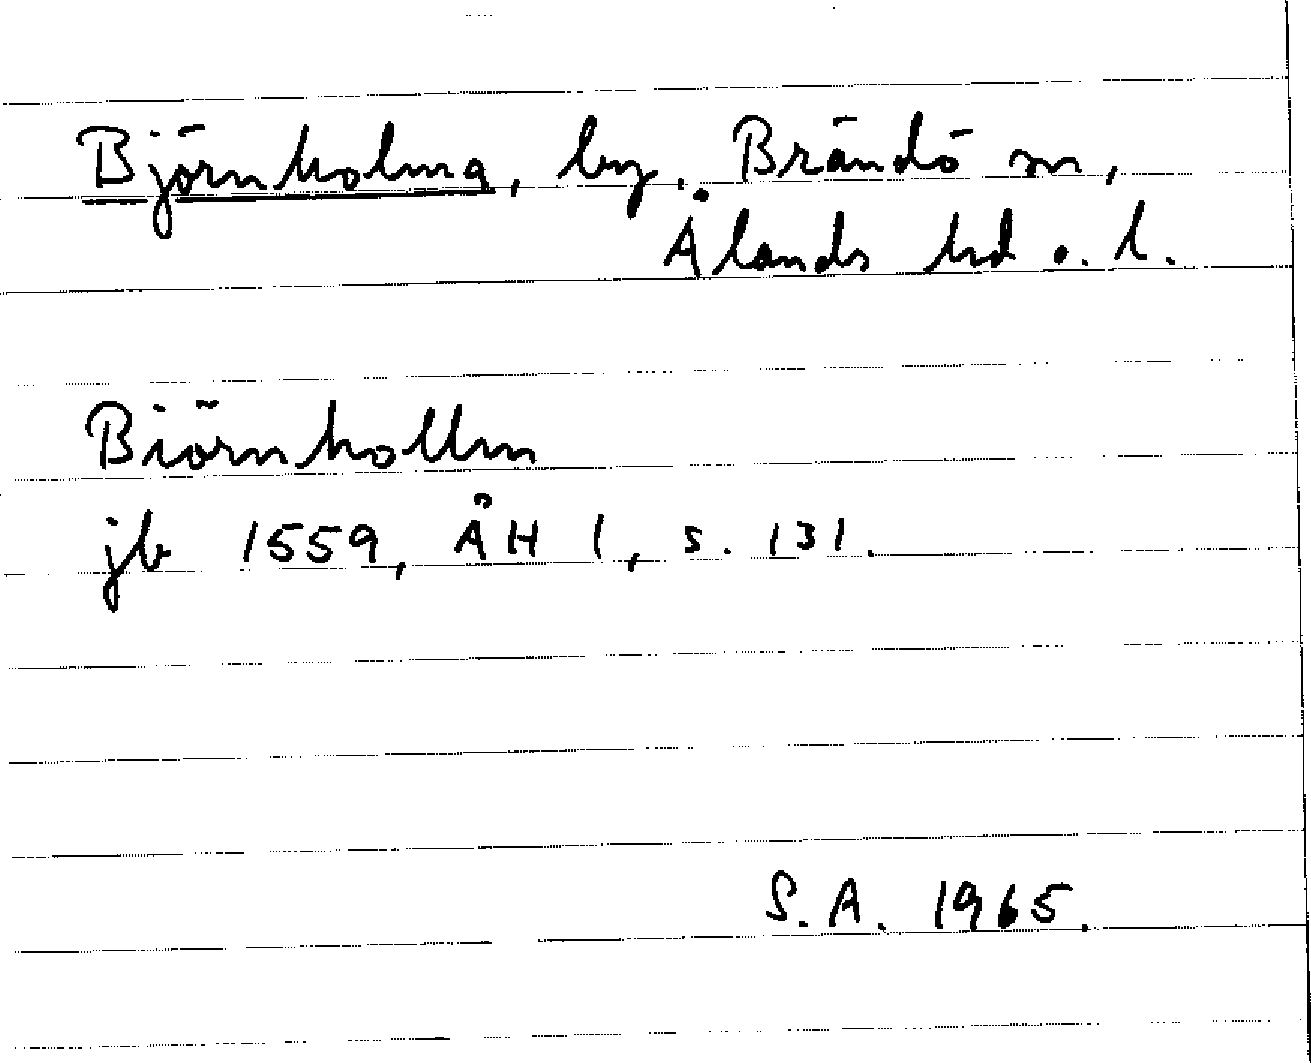 Björnholma, by. Brändö sn,
Ålands hd o. l.
Biörnhollm
jb 1559, ÅH 1, s. 131.
S.A. 1965.